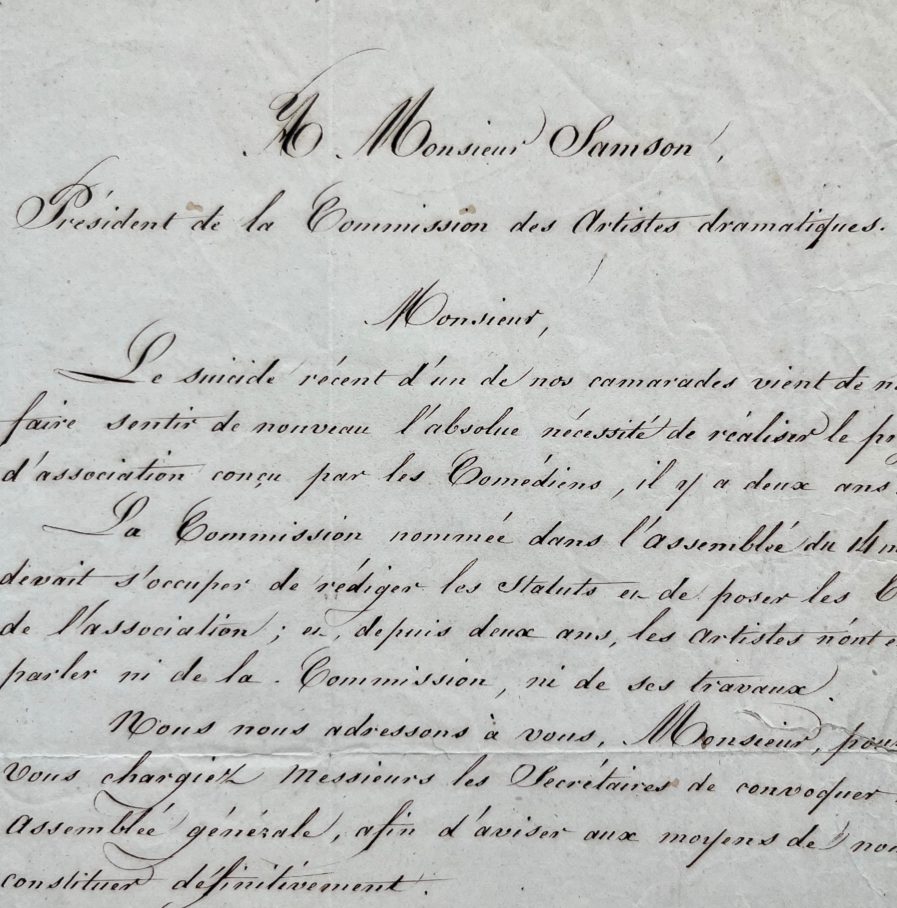 A Monsieur Samson,
Président de la Commission des Artistes dramatiques.
Monsieur,
Le suicide récent d'un de nos camarades vient de
faire sentir de nouveau l'absolue nécessité de réaliser le
d'association conçu par les Comédiens, il y a deux ans.
La Commission nommée dans l'assemblée du 14
devait s'occuper de rédiger les statuts et de poser les
de l'association ; et, depuis deux ans, les artistes n'ont
parler ni de la Commission, ni de ses travaux.
Nous nous adressons à vous, Monsieur, pour
vous chargiez Messieurs les Secrétaires de convoquer
assemblée générale, afin d'aviser aux moyens de
constituer définitivement.